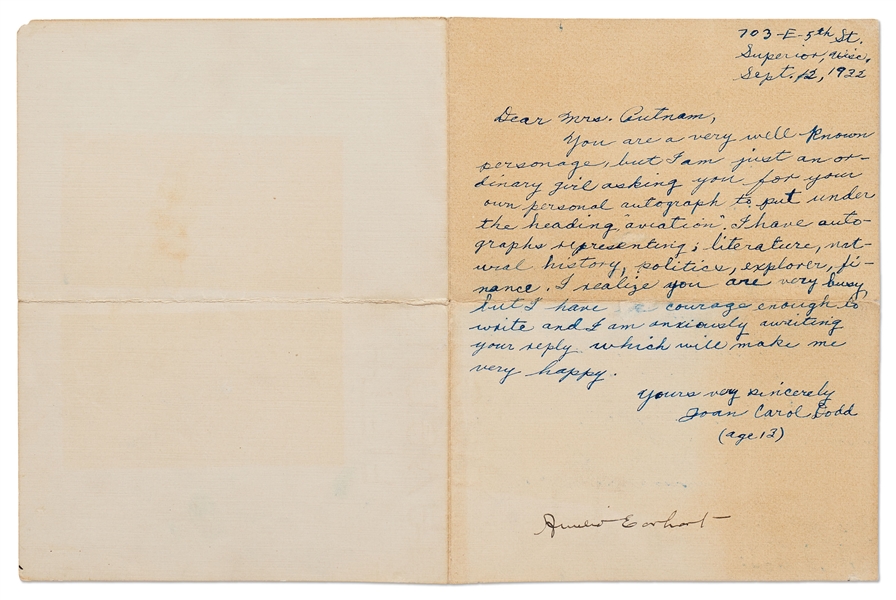 703-E-5th St.
Superior, Wisc.
Sept. 12, 1932
Dear Mrs. Putnam,
You are a very well known
personage, but I am just an or-
dinary girl asking you for your
own personal autograph to put under
the heading, "aviation". I have auto-
graphs representing; literature, nat-
ural history, politics, explorer, fi-
nance. I realize you are very busy,
but I have courage enough to
write and I am anxiously awaiting
your reply which will make me
very happy.
Yours very sincerely
Joan Carol
(age 13)
Amelia Earhart